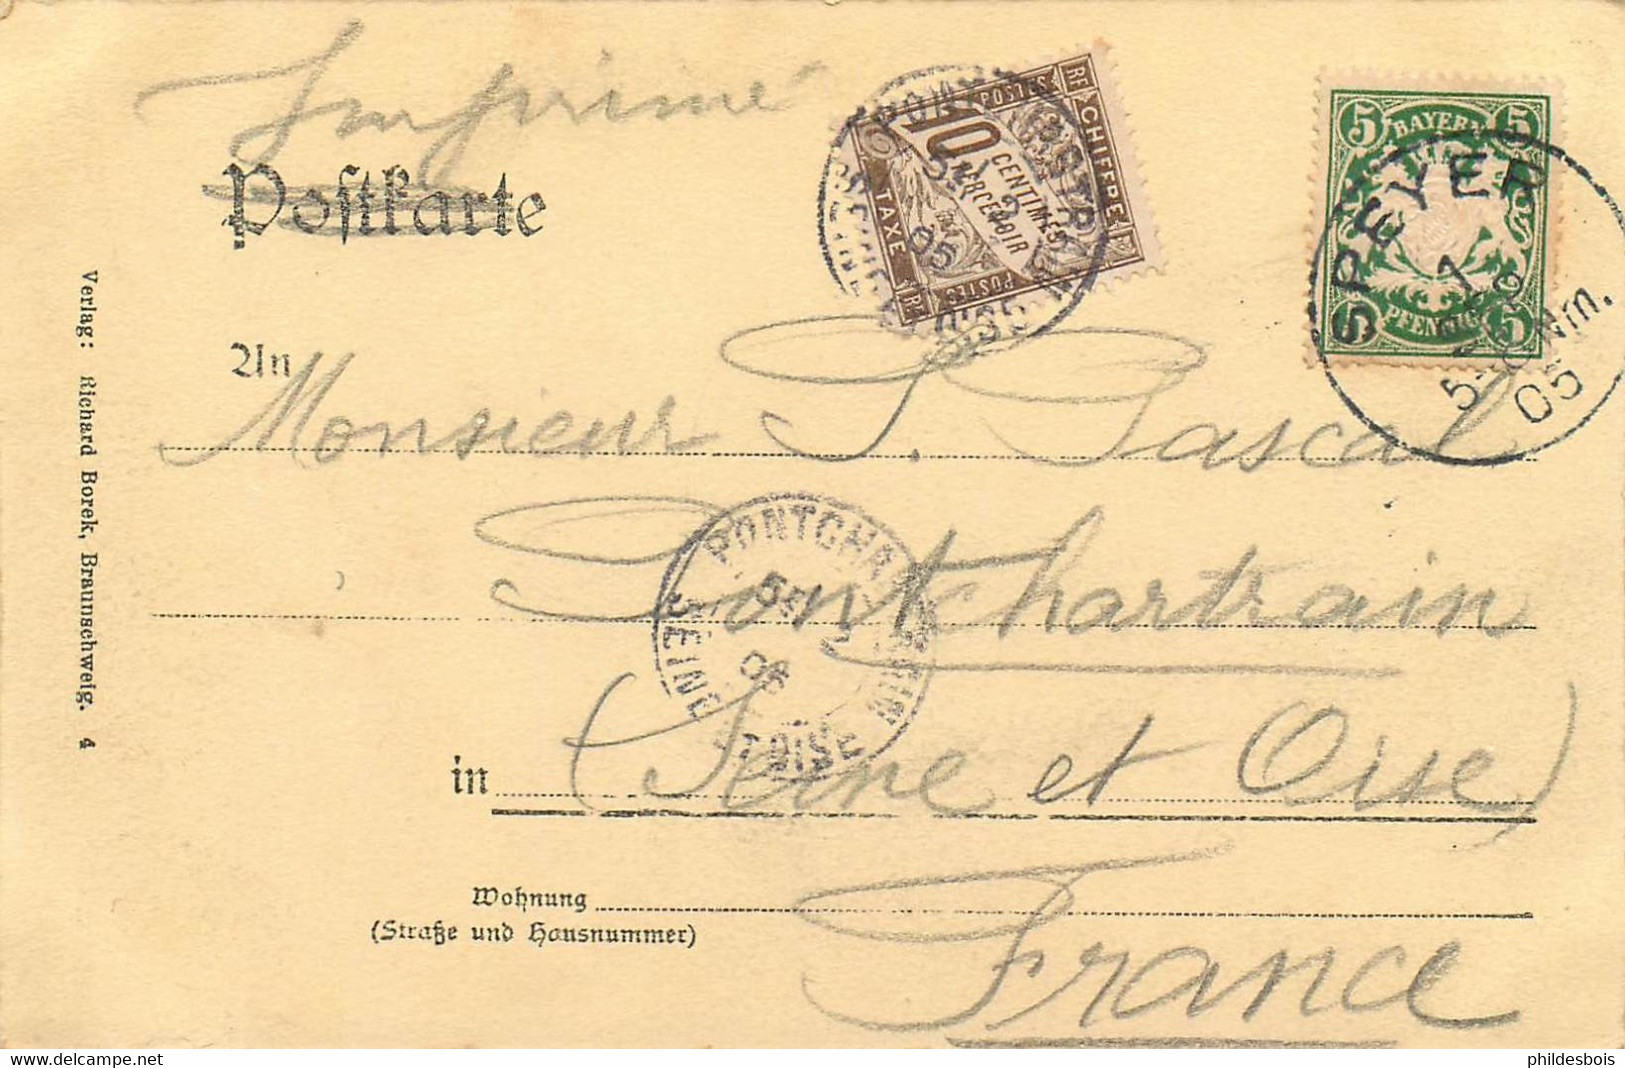 Imprimé
Postkarte
An
Monsieur P. Pascal
Pontchartrain
in (Seine et Oise)
Wohnung
(Straße und Hausnummer)
France
Verlag: Richard Borek, Braunschweig. 4
RF CHIFFRE
POSTES
10
CENTIMES
A PERCEVOIR
TAXE
RF POSTES
5 BAYERN 5
5 PFENNIG 5
SPEYER
1
5-6 Nm.
05
PONTCHARTRAIN
2
05
SEINE ET OISE
phildesbois